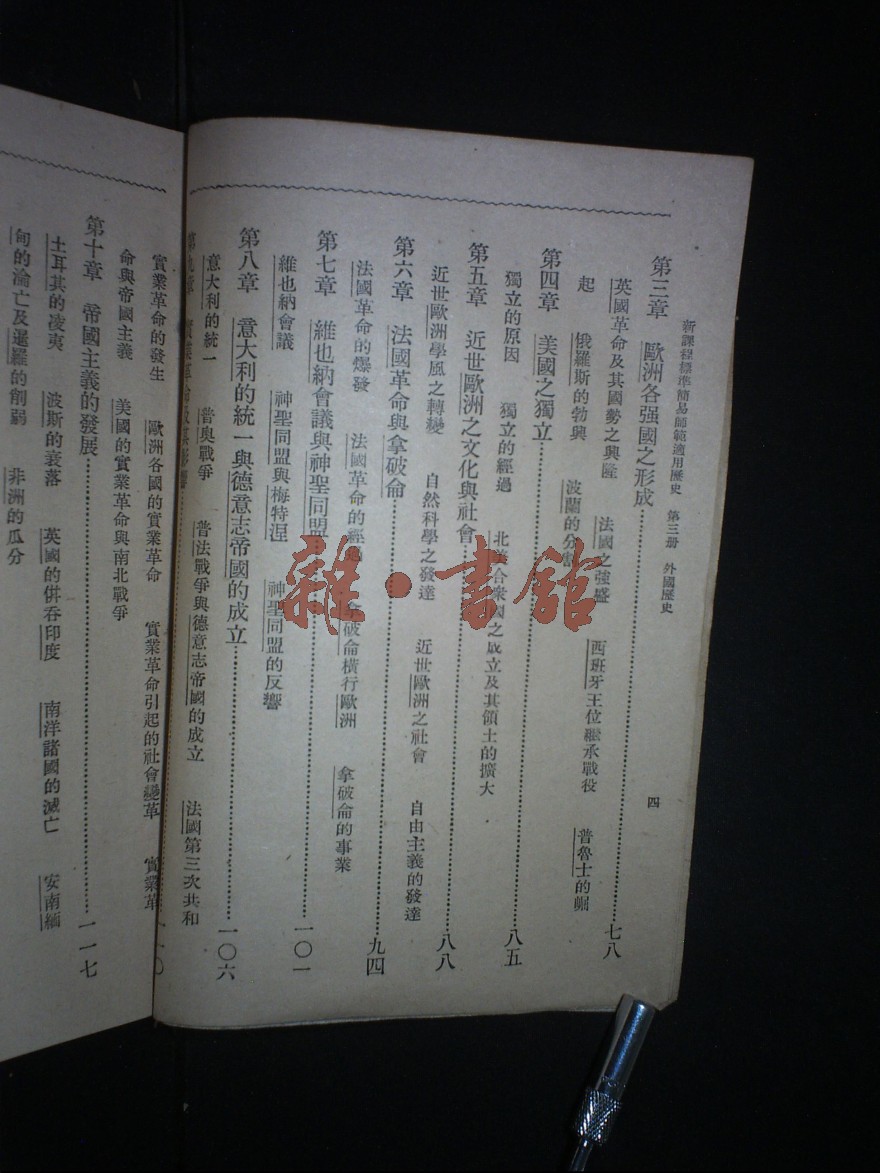 新課程標準簡易師範適用歷史　第三册　外國歷史
四
第三章　歐洲各强國之形成……七八
英國革命及其國勢之興隆　法國之強盛　西班牙王位繼承戰役　普魯士的崛
起　俄羅斯的勃興　波蘭的分割
第四章　美國之獨立……八五
獨立的原因　獨立的經過　北美合衆國之成立及其領土的擴大
第五章　近世歐洲之文化與社會……八八
近世歐洲學風之轉變　自然科學之發達　近世歐洲之社會　自由主義的發達
第六章　法國革命與拿破侖……九四
法國革命的爆發　法國革命的經過　拿破侖橫行歐洲　拿破侖的事業
第七章　維也納會議與神聖同盟……一〇一
維也納會議　神聖同盟與梅特涅　神聖同盟的反響
第八章　意大利的統一與德意志帝國的成立……一〇六
意大利的統一　普奧戰爭　普法戰爭與德意志帝國的成立　法國第三次共和
第九章　實業革命……一一〇
實業革命的發生　歐洲各國的實業革命　實業革命引起的社會變革　實業革
命與帝國主義　美國的實業革命與南北戰爭
第十章　帝國主義的發展……一一七
土耳其的凌夷　波斯的衰落　英國的併吞印度　南洋諸國的滅亡　安南緬
甸的淪亡及暹羅的削弱　非洲的瓜分
雜·書館